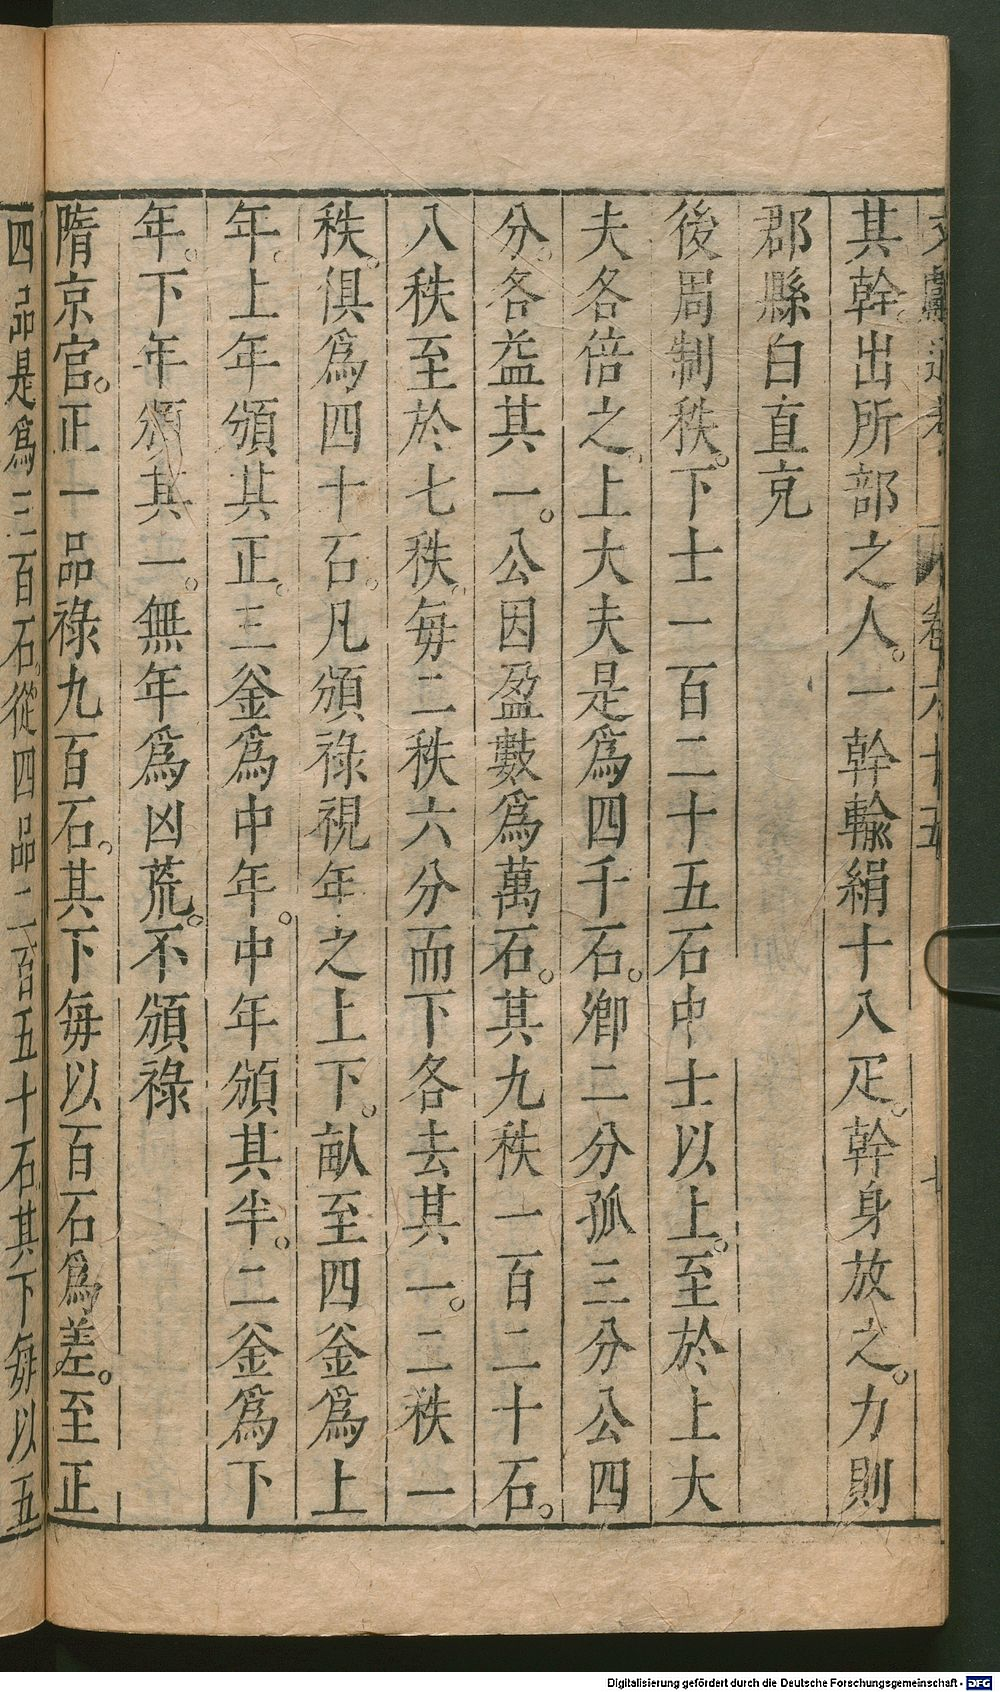 文獻通考 卷六十五 七
其幹。出所部之人。一幹輸絹十八疋。幹身放之。力則
郡縣白直充
後周制秩。下士一百二十五石中士以上。至於上大
夫各倍之。上大夫是爲四千石。卿二分孤三分公四
分。各益其一。公因盈數爲萬石。其九秩一百二十石。
八秩至於七秩。每二秩六分而下各去其一。二秩一
秩。俱爲四十石。凡頒祿視年之上下。畝至四釜爲上
年。上年頒其正。三釜爲中年。中年頒其半。二釜爲下
年。下年頒其一。無年爲凶荒。不頒祿
隋京官。正一品祿九百石。其下每以百石爲差。至正
四品是爲三百石。從四品二百五十石其下每以五
Digitalisierung gefördert durch die Deutsche Forschungsgemeinschaft - DFG